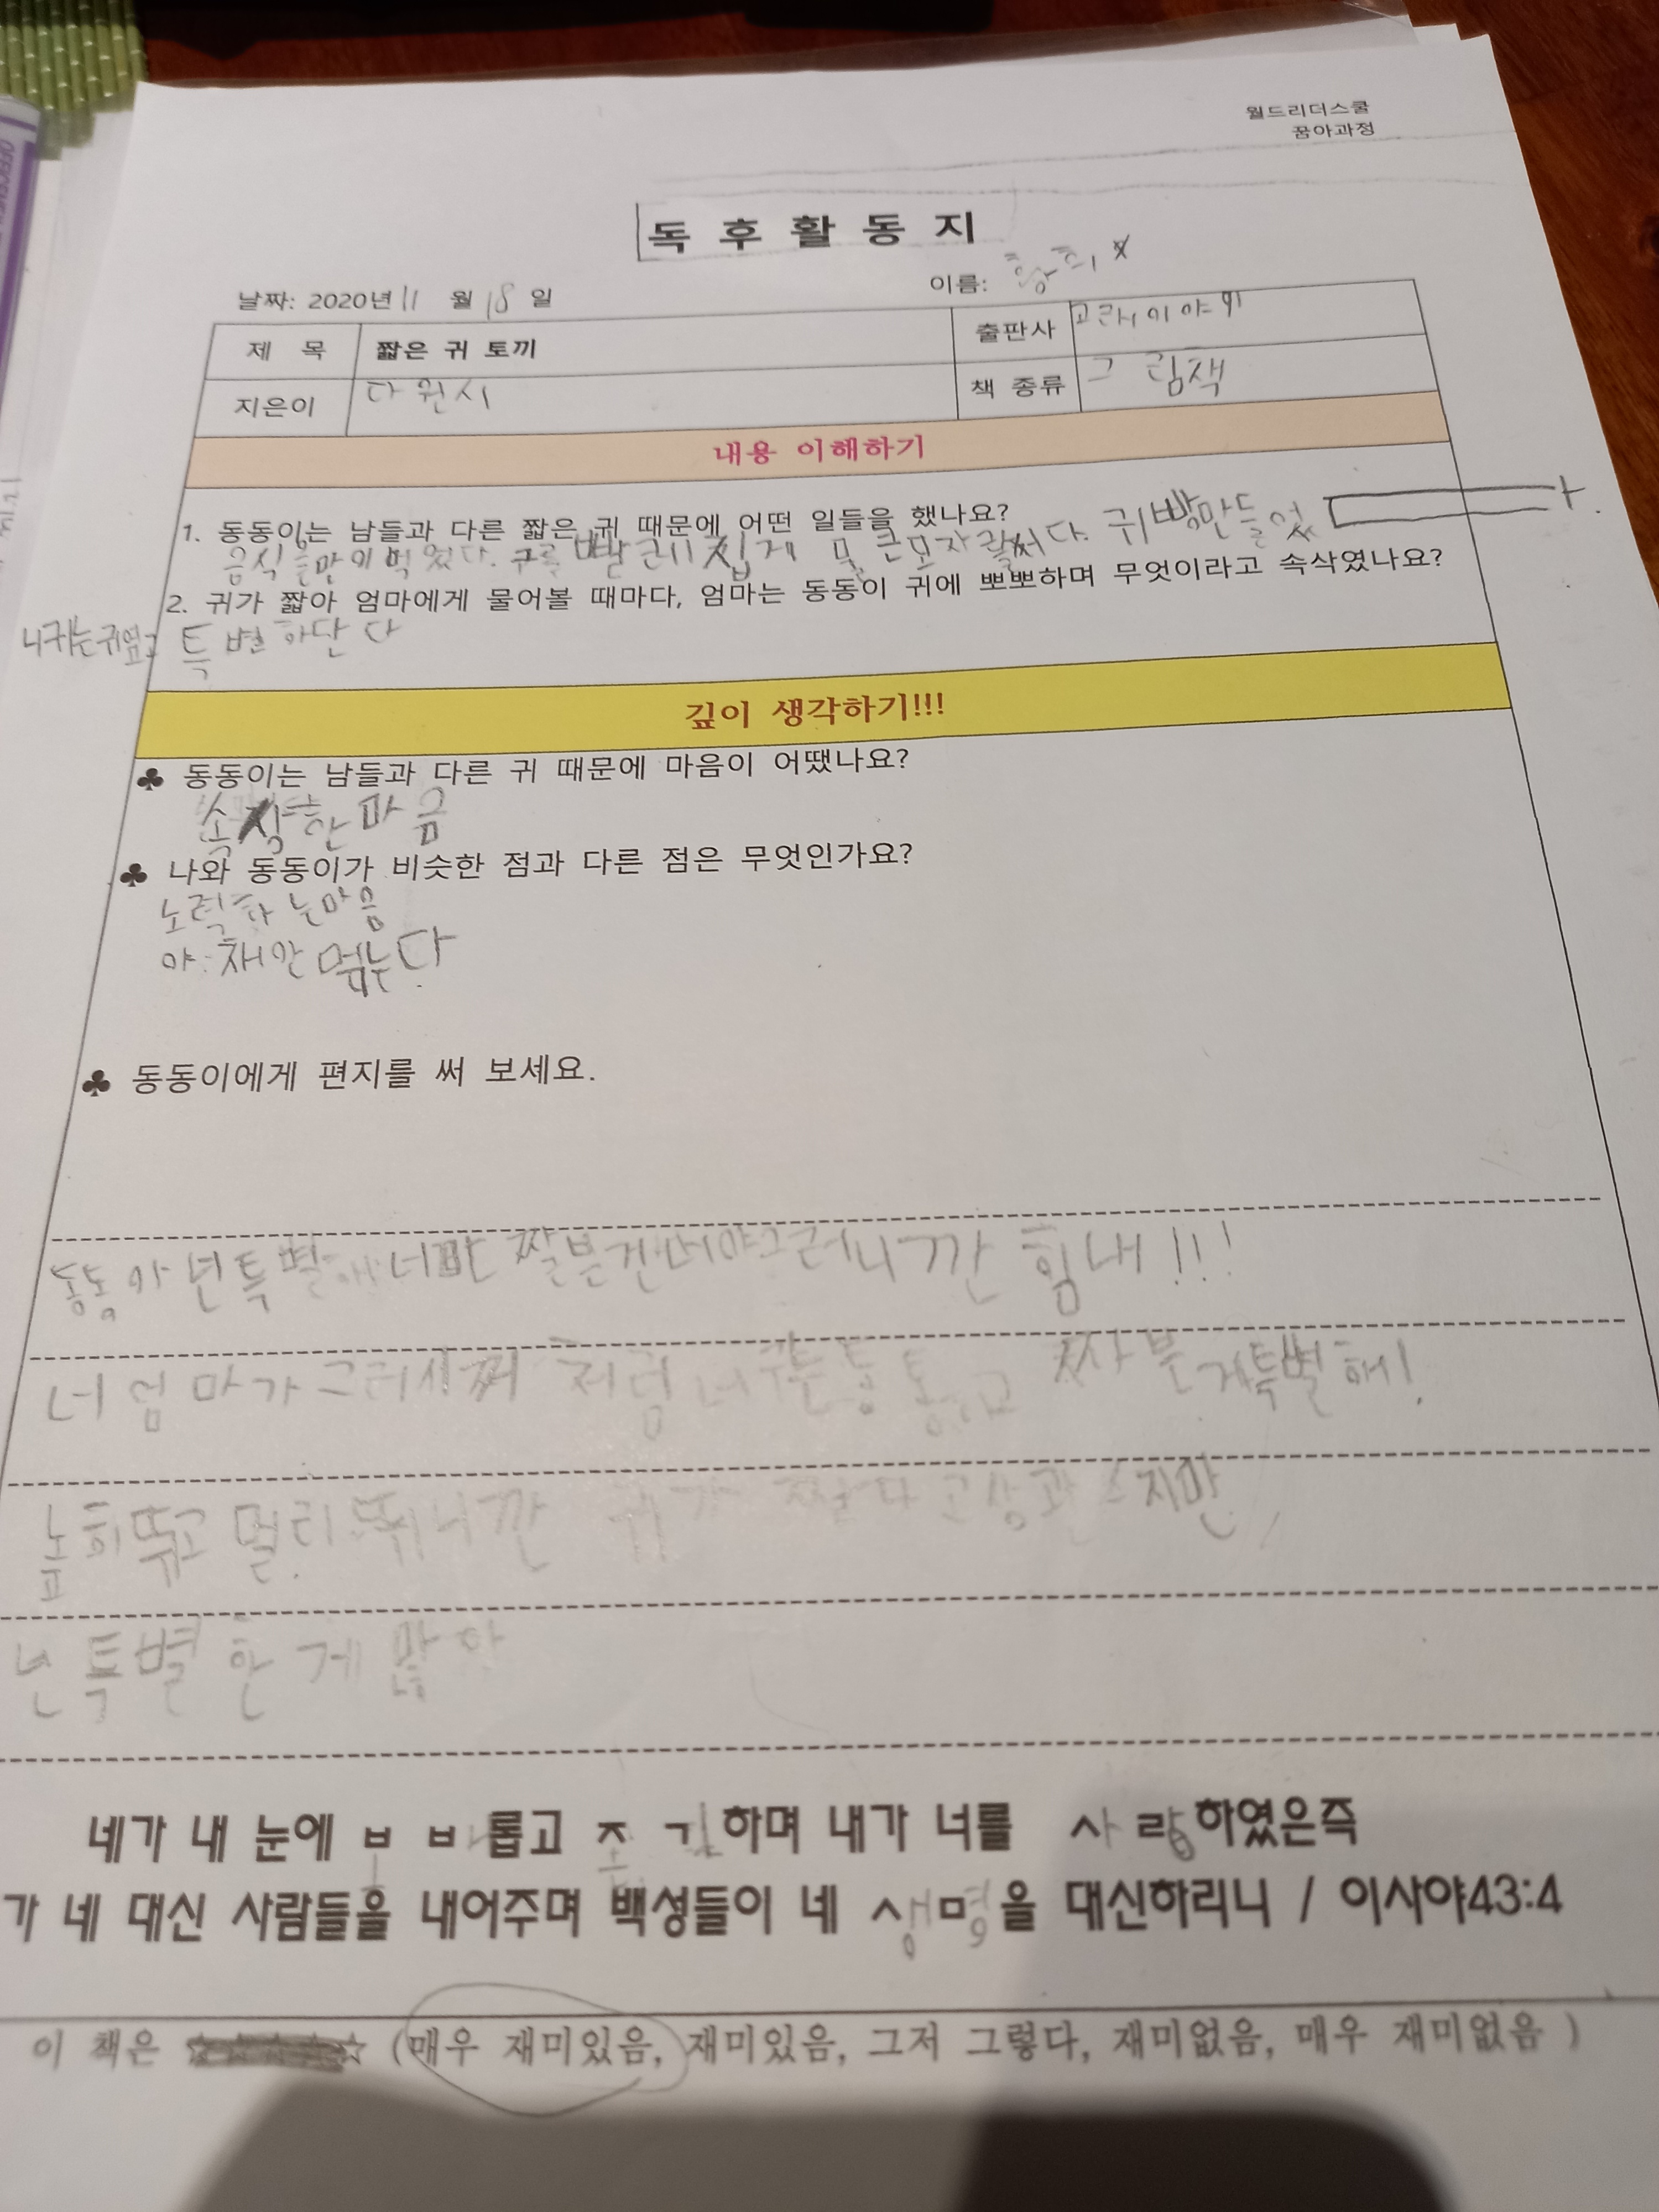 월드리더스쿨
꿈아과정
독 후 활 동 지
날짜: 2020년 11 월 18 일
이름: 황희
제 목 짧은 귀 토끼
출판사 고래이야기
지은이 다원시
책 종류 그림책
내용 이해하기
1. 동동이는 남들과 다른 짧은 귀 때문에 어떤 일들을 했나요?
음식을만이먹었다. 빨레집게 큰모자 귀빵만들었 다.
2. 귀가 짧아 엄마에게 물어볼 때마다, 엄마는 동동이 귀에 뽀뽀하며 무엇이라고 속삭였나요?
니귀는귀엽고 특별하단다
깊이 생각하기!!!
♣ 동동이는 남들과 다른 귀 때문에 마음이 어땠나요?
속상한 마음
♣ 나와 동동이가 비슷한 점과 다른 점은 무엇인가요?
노력하는마음
야채안먹는다
♣ 동동이에게 편지를 써 보세요.
동동아 넌특별해 너만 짤븐건 그러니깐 힘내!!!
너 엄마가 처럼 너 통통하고 특별해!
높히뛰고 멀리뛰니깐 귀가 짤다고 지만
넌 특별한게 많아
네가 내 눈에 보배롭고 존귀하며 내가 너를 사랑하였은즉
가 네 대신 사람들을 내어주며 백성들이 네 생명을 대신하리니 / 이사야43:4
이 책은 ☆☆☆☆☆ (매우 재미있음, 재미있음, 그저 그렇다, 재미없음, 매우 재미없음 )